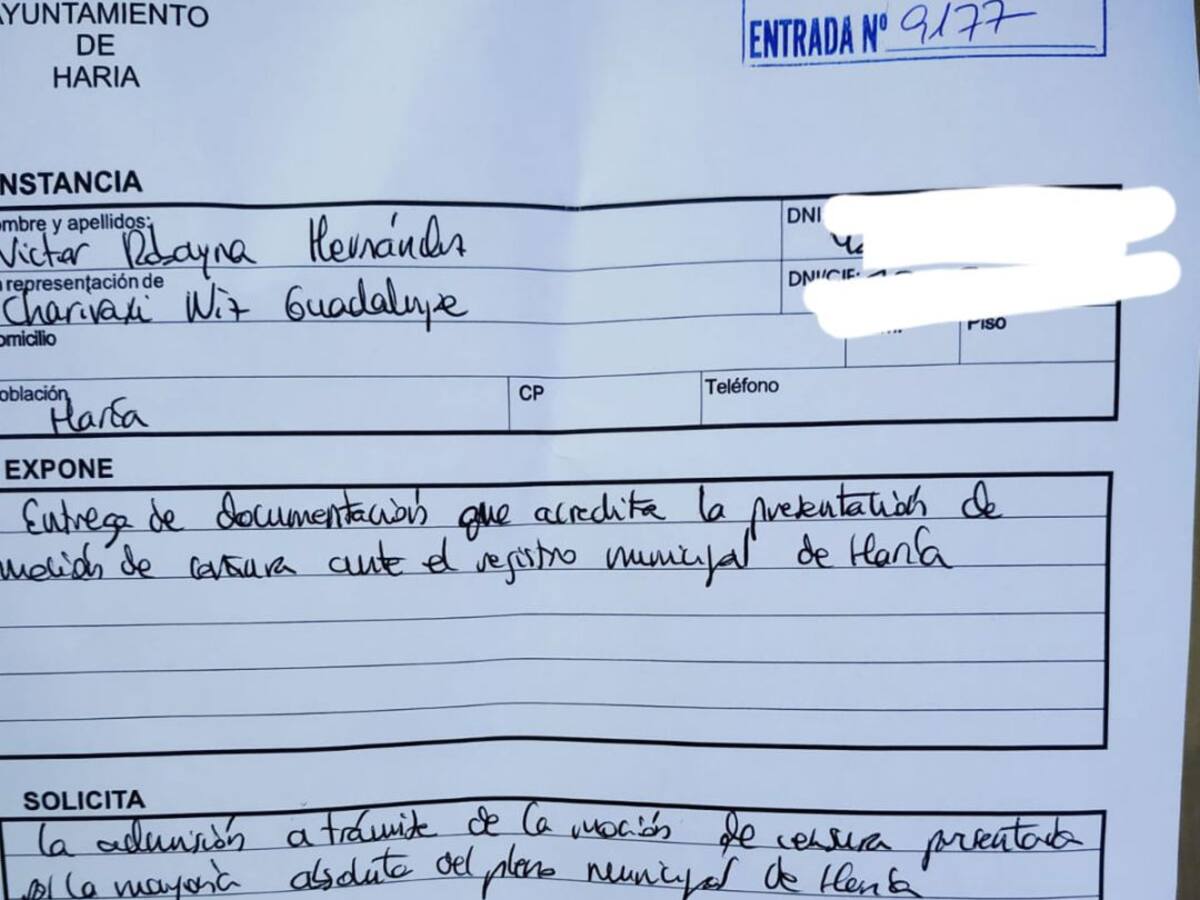 AYUNTAMIENTO
DE
HARIA
ENTRADA Nº 9177
INSTANCIA
ombre y apellidos:
DNI
Victor Robayna Hernández
n representación de
DNI/CIF:
Chaxiraxi Niz Guadalupe
omicilio
Piso
oblación
CP
Teléfono
Haría
EXPONE
Entrega de documentación que acredita la presentación de
moción de censura ante el registro municipal de Haría
SOLICITA
la admisión a trámite de la moción de censura presentada
por la mayoría absoluta del pleno municipal de Haría